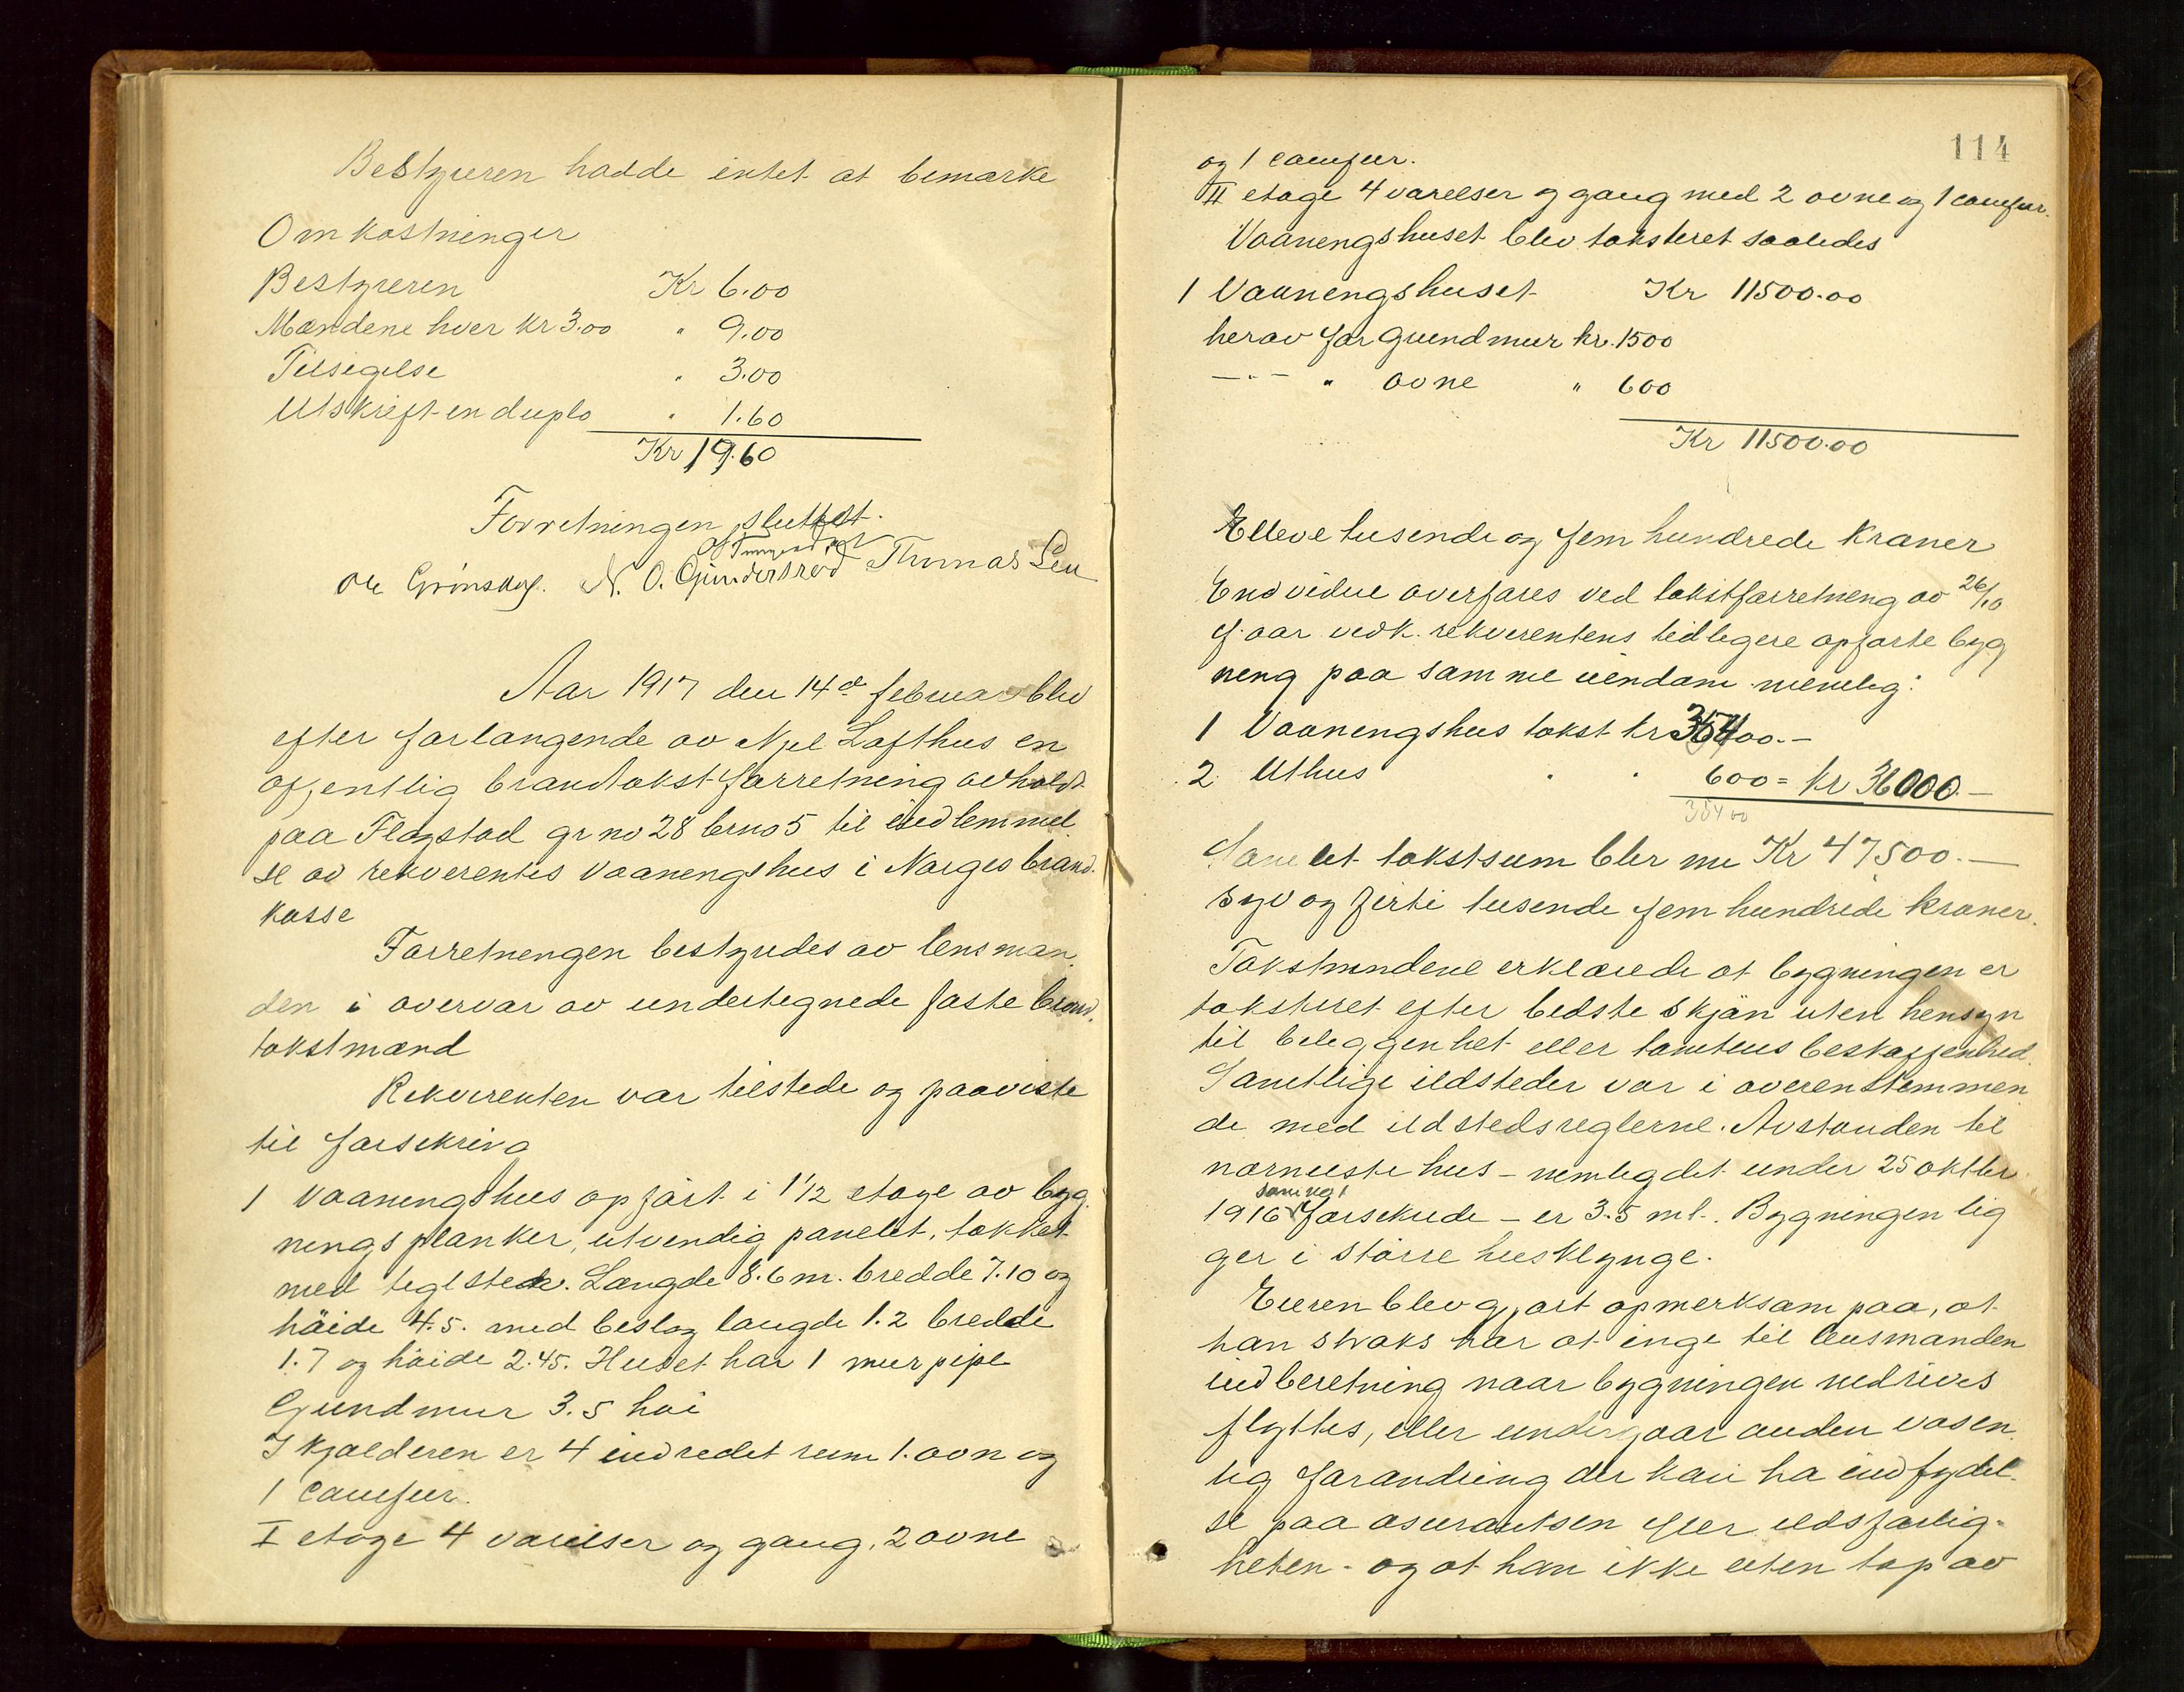 Bestyreren hadde intet at bemærke
Omkostninger
Bestyreren Kr 6.00
Mændene hver kr 3.00 " 9.00
Tilsigelse " 3.00
Utskrift in duplo " 1.60
Kr 19.60
Forretningen sluttet.
Ole Grønskog. N. O. Gundersrød Thomas Lea
Aar 1917 den 14de februar blev
efter forlangende av Njel Lofthus en
offentlig brandtakst forretning avholdt
paa Flogstad gr no 28 brno 5 til indlemmel
se av rekverentes Vaaningshus i Norges brand.
kasse
Forretningen bestyredes av lensman
den i overvær av undertegnede faste brand.
takstmænd
Rekverenten var tilstede og paaviste
til forsikring
1 Vaaningshus opført i 1 1/2 etage av byg
nings planker, utvendig panelet, tækket
med teglsten. Længde 8.6 m. bredde 7.10 og
høide 4.5. med beslag længde 1.2 bredde
1.7 og høide 2.45. Huset har 1 mur pipe
Grundmur 3.5 høi
I kjælderen er 4 indredet rum 1. ovn og
1 comfur.
I etage 4 værelser og gang, 2 ovne
114
og 1 comfur.
II etage 4 værelser og gang med 2 ovne og 1 comfur.
Vaaningshuset blev taksteret saaledes
1 Vaaningshuset Kr 11500.00
herav for grundmur kr. 1500
—"— " ovne " 600
Kr 11500.00
Elleve tusende og fem hundrede Kroner
Endvidere overføres ved takstforretning av 26/10
f. aar vedk. rekverentens tidligere opførte byg
ning paa samme eiendom nemlig:
1 Vaaningshus takst kr 35400.—
2 Uthus " " 600 = kr 36000.—
35400
Samlet takstsum blir nu Kr 47500.—
syv og firti tusende fem hundrede kroner.
Takstmændene erklærede at bygningen er
taksteret efter bedste skjøn uten hensyn
til beliggenhet eller tomtens beskaffenhed.
Samtlige ildsteder var i overenstemmen
de med ildstedsreglerne. Avstanden til
nærmeste hus – nemlig det under 25 oktbr
1916 forsikrede – er 3.5 mt. Bygningen lig
ger i større husklynge.
Eieren blev gjort opmerksom paa, at
han straks har at inge til lensmanden
indberetning naar bygningen nedrives
flyttes, eller undergaar anden væsen
lig forandring der kan ha indfydel
se paa asurantsen eller ildsfarlig-
heten – og at han ikke uten tap av